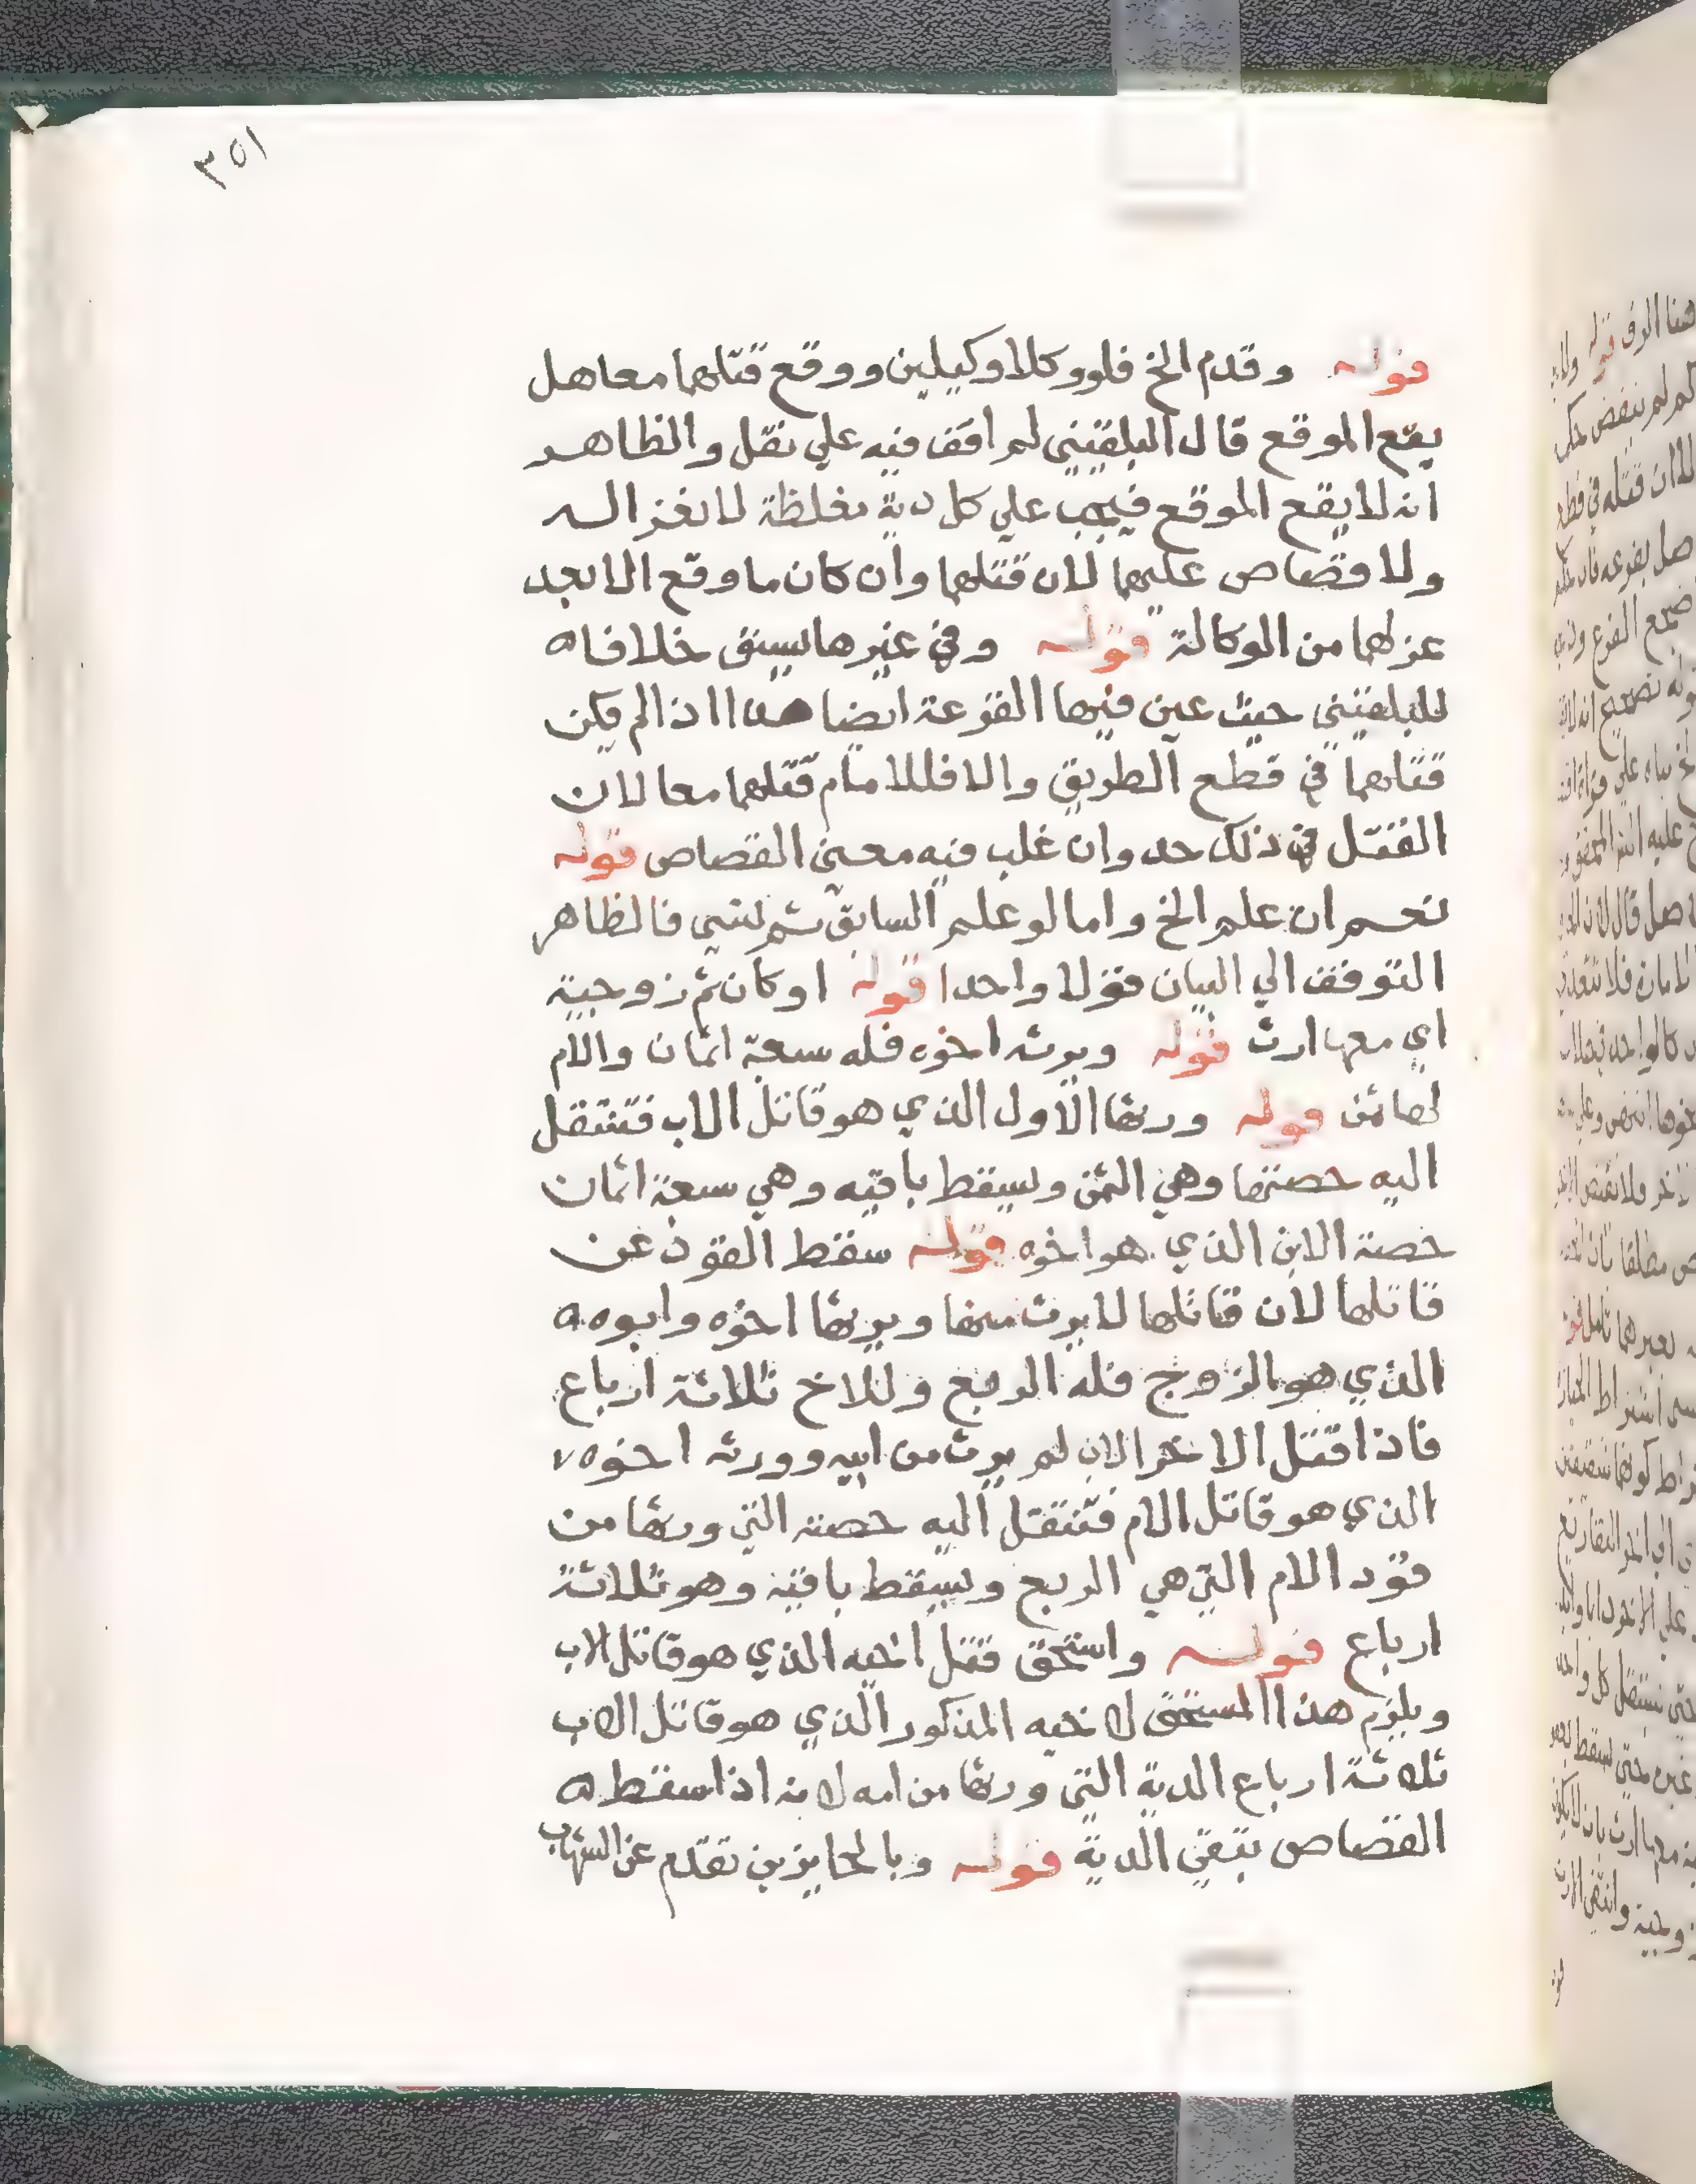 ٣٥١
قوله وقدم الخ فلو وكلا وكيلين ووقع قتلهما معا هل
يقع الموقع قال البلقيني لم اقف فيه علي نقل والظاهر
انه لا يقع الموقع فيجب علي كل دية مغلظة لانعزاله
ولا قصاص عليهما لان قتلهما وان كان ما وقع الا بعد
عزلهما من الوكالة قوله وفي غيرها يسبق خلافا ه
للبلقيني حيث عين فيها القرعة ايضا هذا اذا لم يكن
قتلهما في قطع الطريق والا فللامام قتلهما معا لان
القتل في ذلك حد وان غلب فيه معني القصاص قوله
نعم ان علم الخ واما لو علم السابق ثم نسي فالظاهر
التوقف الي البيان قولا واحدا قوله او كان ثم زوجية
اي معها ارث قوله ويرثه اخوه فله سبعة اثمان والام
لها ثمن قوله ورثها الاول الذي هو قاتل الاب فتنتقل
اليه حصتها وهي الثمن ويسقط باقيه وهي سبعة اثمان
حصة الابن الذي هو اخوه قوله سقط القود عن
قاتلها لان قاتلها لا يرث منها ويرثها اخوه وابوه ه
الذي هو الزوج فله الربع وللاخ ثلاثة ارباع
فاذا قتل الاخر الاب لم يرث من ابيه وورثه اخوه
الذي هو قاتل الام فتنتقل اليه حصته التي ورثها من
قود الام التي هي الربع ويسقط باقيه وهو ثلاثة
ارباع قوله واستحق قتل اخيه الذي هو قاتل الاب
ويلزم هذا المستحق لاخيه المذكور الذي هو قاتل الاب
ثلاثة ارباع الدية التي ورثها من امه لانه اذا سقط ه
القصاص بقي الدية قوله وبالحايزين تقدم عن الشهاب